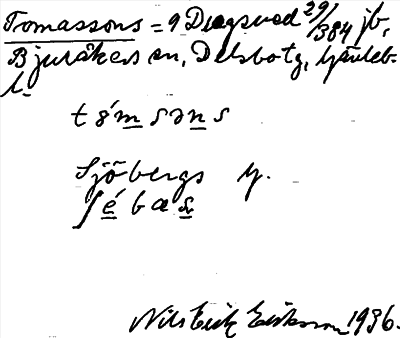 Tomassons = 9 Dragsved 29/384 jb,
Bjuråkers sn, Delsbo tg, Gävleb.
l.
t ó m s ə n s
Sjöbergs y.
ʃ é b æ s
Nils Erik Eriksson 1936.